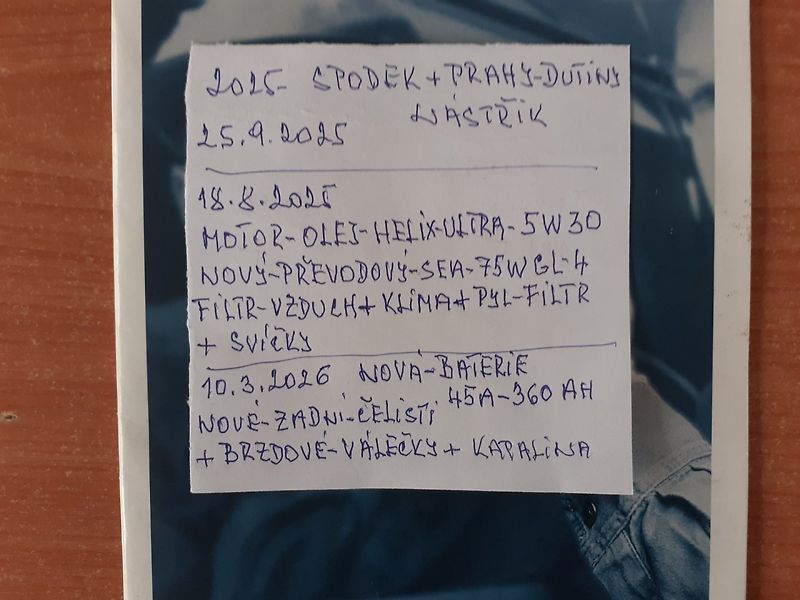 2025- SPODEK + PRAHY-DUTINY
NÁSTŘIK
25.9.2025
18.8.2025
MOTOR-OLEJ-HELIX-ULTRA-5W30
NOVÝ-PŘEVODOVÝ-SEA-75W GL-4
FILTR-VZDUCH+KLIMA+PYL-FILTR
+ SVÍČKY
10.3.2026 NOVÁ-BATERIE
45A-360 AH
NOVÉ-ZADNÍ-ČELISTI
+ BRZDOVÉ-VÁLEČKY + KAPALINA